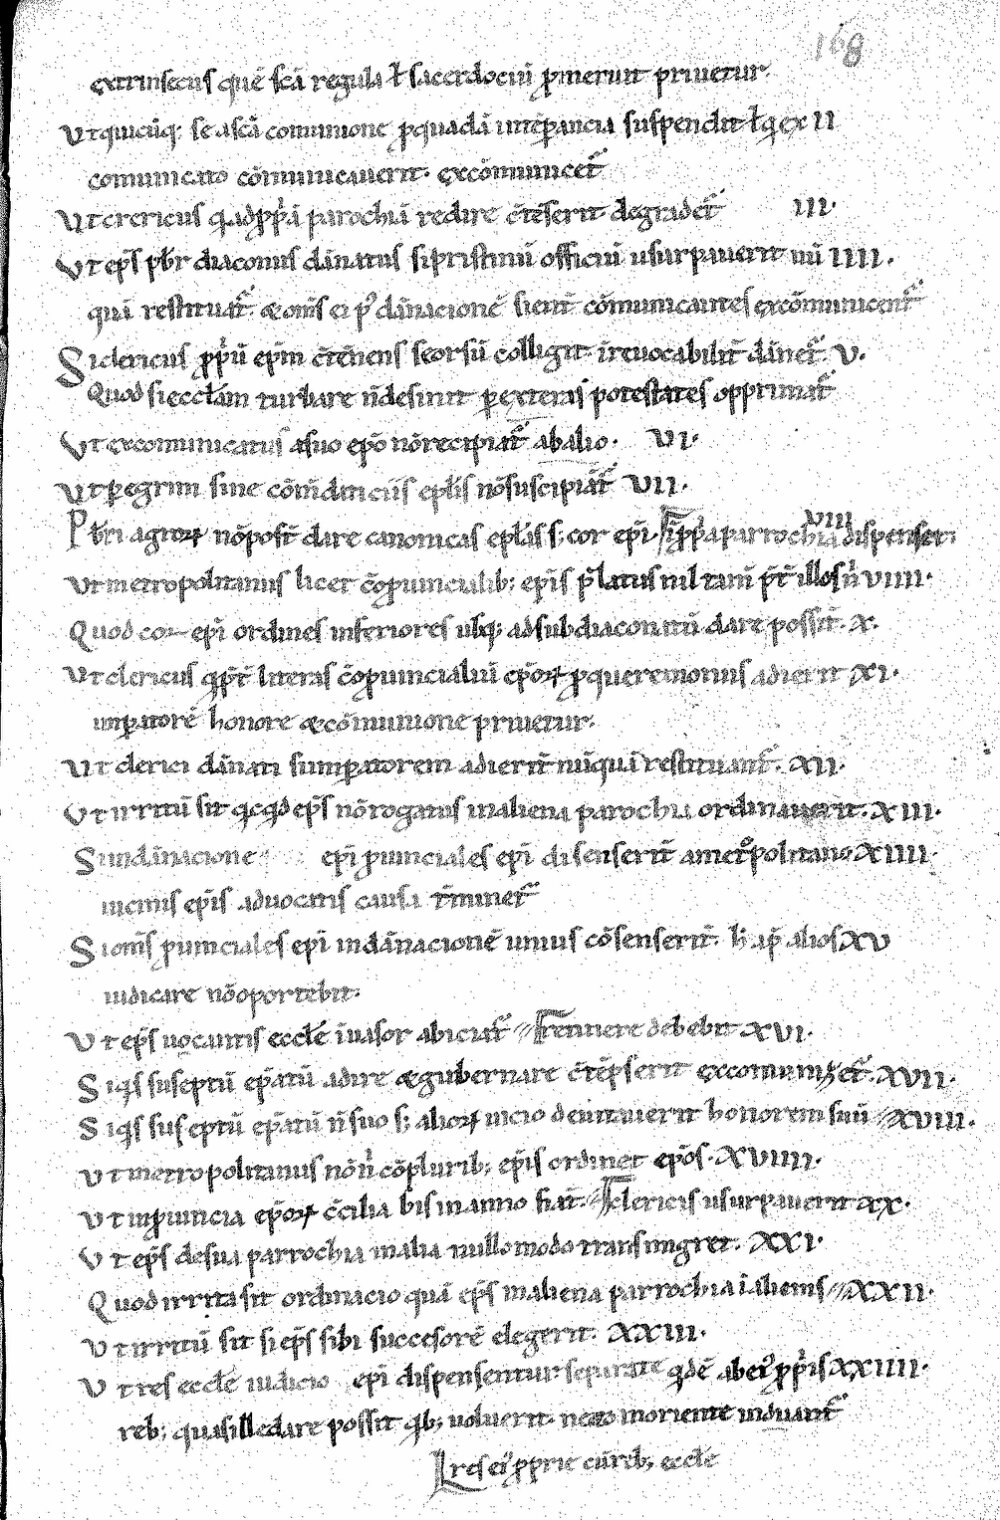 168
extrinsecus quē scā regula ł sacerdociū ꝓmerunt priuetur.
Ut quicūq; se a scā comunione ꝓ quadā intēꝑancia suspendit ł q ex II
comunicato cōmunicauerit. excōmunicet̄
Ut clericus q ad ꝓpꝓā parochiā redire c̄tēserit degradet̄ III.
Ut ep̄s pb̄r diaconus dānatus si pristinū officiū usurpauerit nū IIII.
quā restituat̄. & om̄s ei p' dānacionē sient̄ cōmunicantes excōmunicent̄
Si clericus ꝓpriū ep̄m c̄tēnens seorsū colligit. irreuocabilit̄ dānet̄. V.
Quod si eccłam turbare n̄ desinit ꝑ exteras potestates opprimat̄
Ut excomunicatus a suo ep̄o nō recipiat̄ ab alio. VI.
Ut ꝑegrini sine cōm̄daticiis epłis nō suscipiāt̄ VII.
VIII
Pb̄ri agroꝝ nō poss̄t dare canonicas epłas s; cor ep̄i. i ꝓpꝓa parrochia dispenset;
Ut metropolitanus licet c̄ꝓuincialib; ep̄is p̄latus nil tam̄ p̄t̄ illos n̄ VIIII.
Quod cor ep̄i ordines inferiores usq; ad subdiaconatū dare possīt. X.
Ut clericus q p̄t̄ literas c̄ꝓuincialiū ep̄oꝝ ꝓ querimoniis adierit XI.
imꝑatorē honore & cōmunione priuetur.
Ut clerici dānati si imꝑatorem adierīt nūquā restituant̄. XII.
Ut irritū sit qcqd ep̄s nō rogatus in aliena parochia ordinauerit. XIII.
Si in dānacione ep̄i ꝓuinciales ep̄i disenserīt a metropolitano XIIII.
uicinis ep̄is aduocatis causa t̄minet̄
Si om̄s ꝓuinciales ep̄i in dānacionē unius cōsenserīt. h ap̄ alios XV
iudicare nō oportebit.
Ut ep̄s uocantis eccłe īuasor abiciat̄ // retinere debebit XVI.
Siq̄s susceptū ep̄atū adire & gubernare c̄tēpserit excomunicet̄. XVII.
Siq̄s susceptū ep̄atū n̄ suo s; alioꝝ uicio deuitauerit honorem suū // XVIII.
Ut metropolitanus nō n̄ cō plurib; ep̄is ordinet ep̄os. XVIIII.
Ut in ꝓuincia ep̄oꝝ c̄cilia bis in anno fiāt. // clericis usurpauerit XX.
Ut ep̄s de sua parrochia in alia nullo modo transmigret. XXI.
Quod irrita sit ordinacio quā ep̄s in aliena parrochia ī alienis // XXII.
Ut irritū sit si ep̄s sibi succesorē elegerit. XXIII.
Ut res eccłe iudicio ep̄i dispensentur separate qdē ab ei' ꝓpriis XXIIII.
reb; quas ille dare possit qb; uoluerit. ne eo moriente induant̄
res ei' ꝓprie cū reb; eccłe